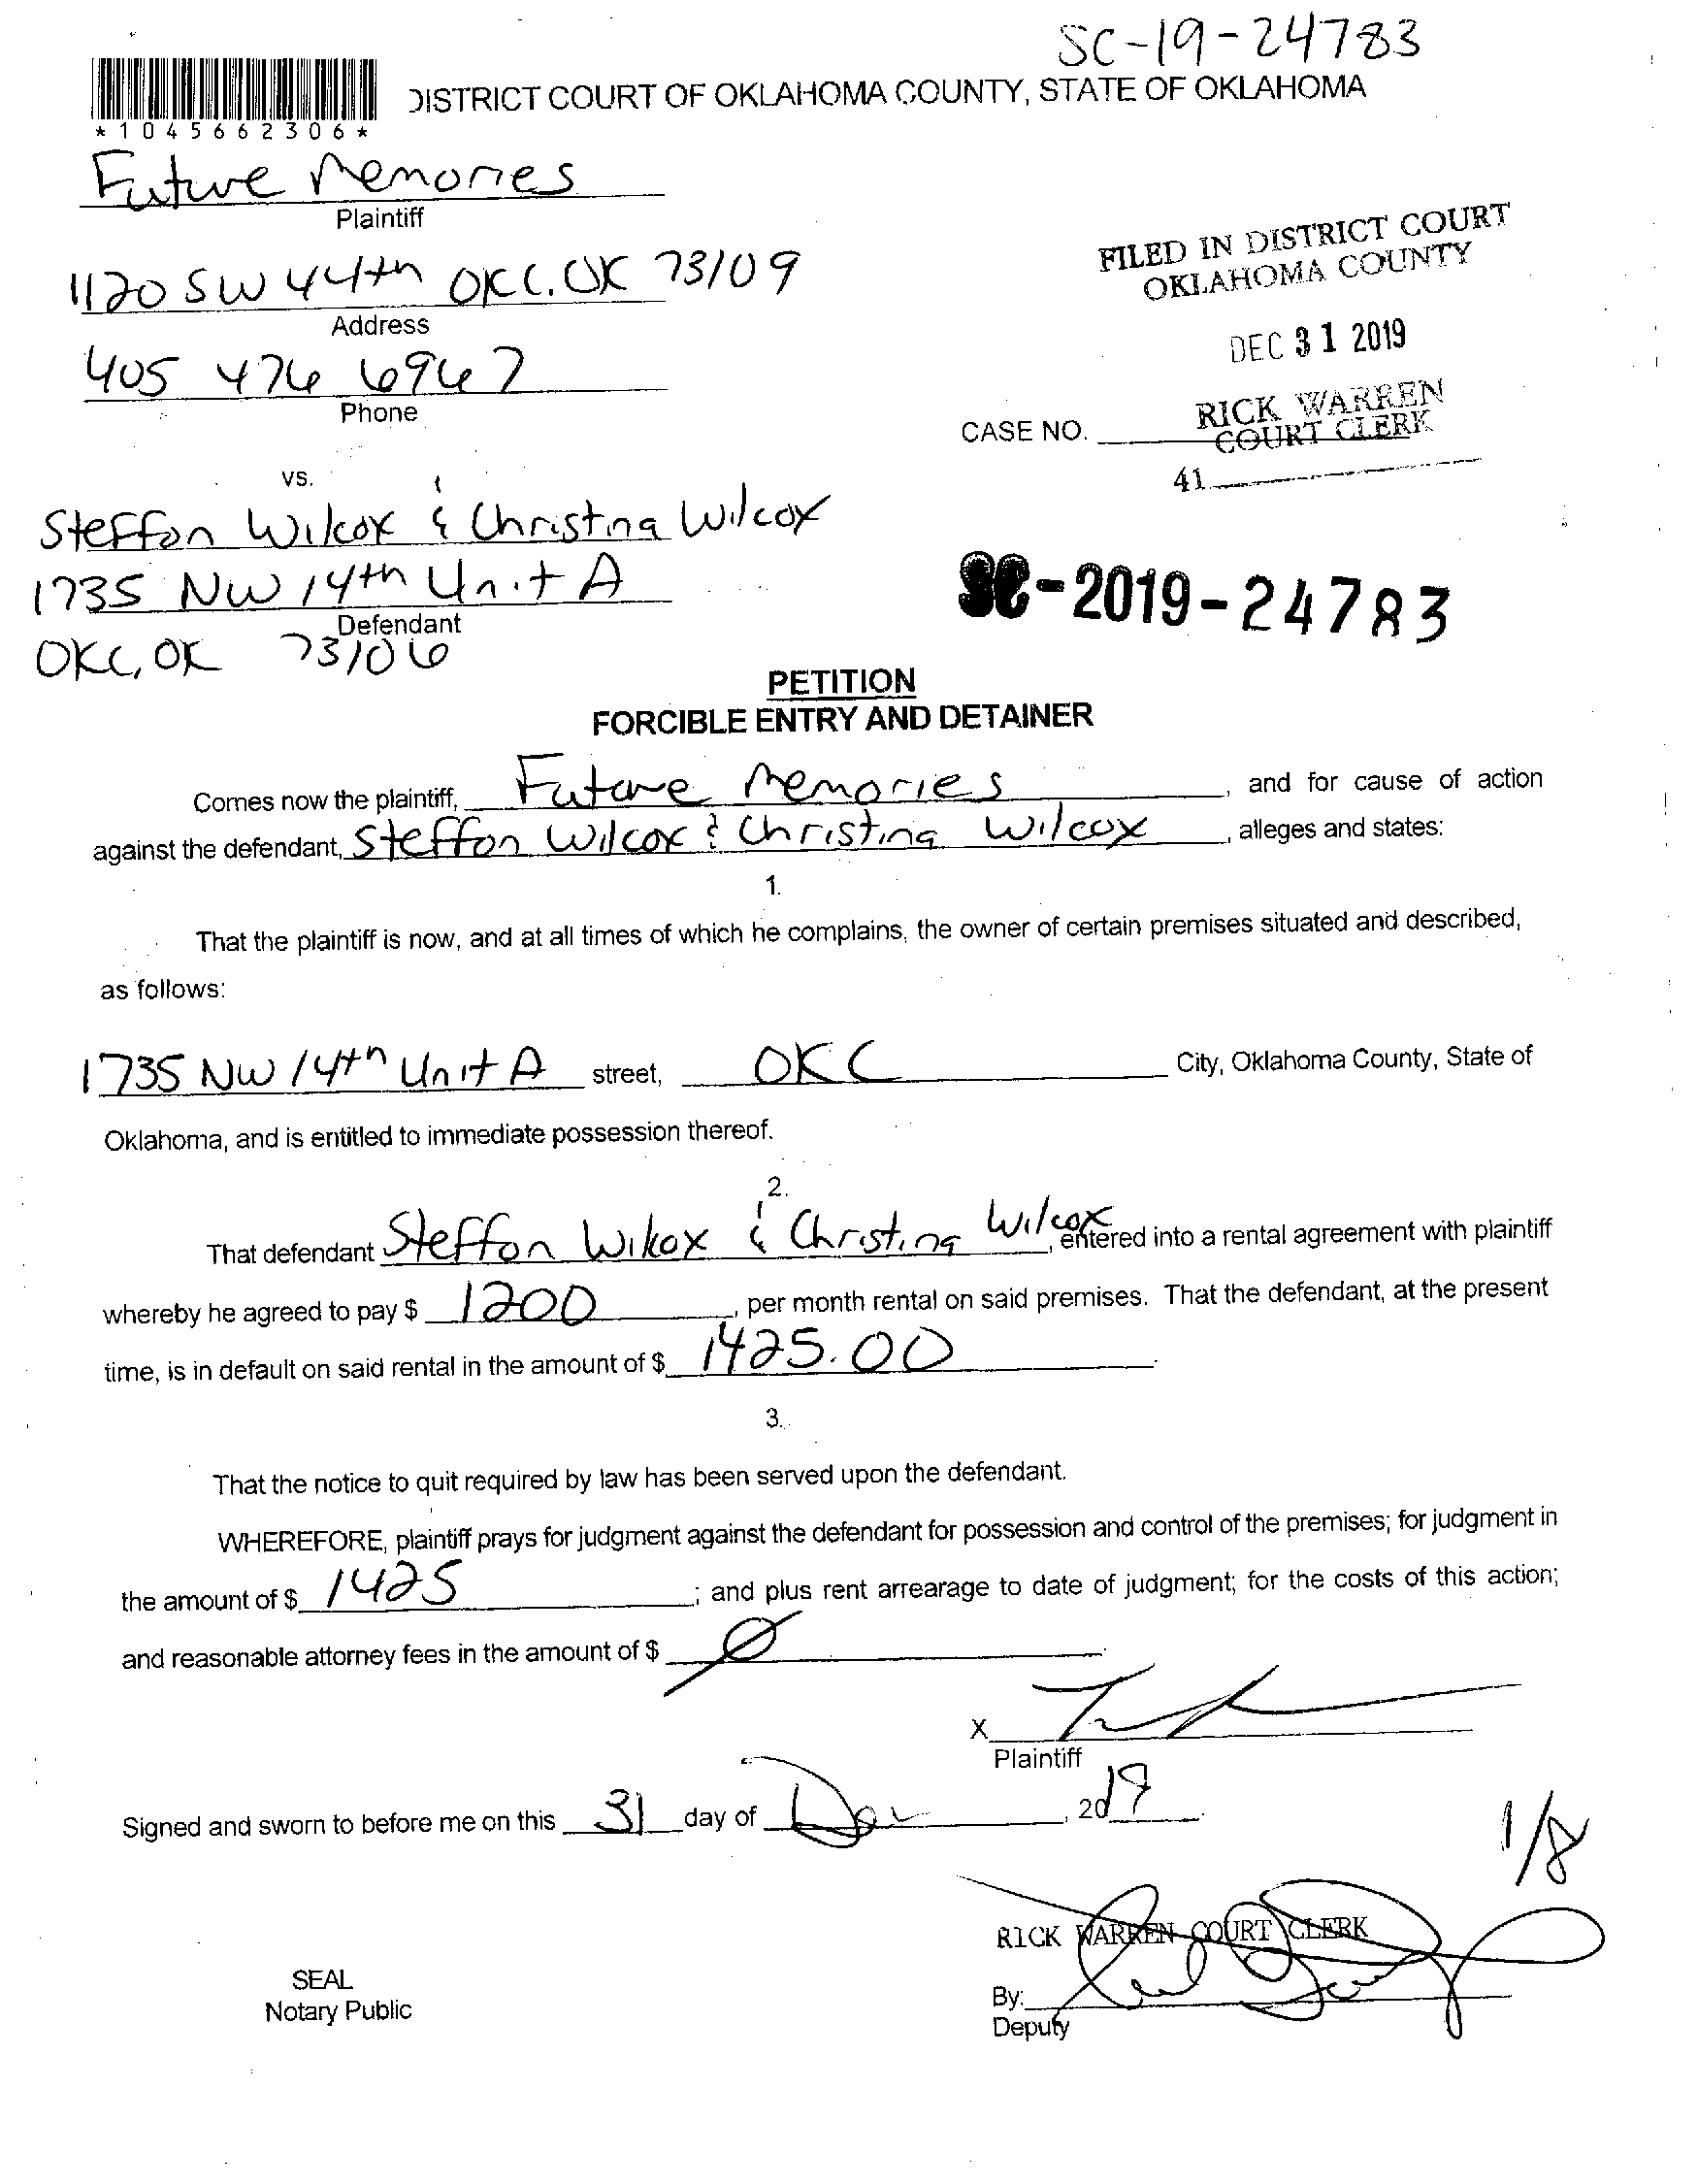 SC-19-24783
DISTRICT COURT OF OKLAHOMA COUNTY, STATE OF OKLAHOMA
*1045662306*
Future Memories
Plaintiff
1120 SW 44th OKC. OK 73109
Address
405 476 6967
Phone
FILED IN DISTRICT COURT
OKLAHOMA COUNTY
DEC 31 2019
RICK WARREN
COURT CLERK
CASE NO.
41
vs.
Steffon Wilcox & Christina Wilcox
1735 NW 14th Unit A
Defendant
OKC, OK 73106
SC-2019-24783
PETITION
FORCIBLE ENTRY AND DETAINER
Comes now the plaintiff, Future Memories, and for cause of action
against the defendant, Steffon Wilcox & Christina Wilcox, alleges and states:
1.
That the plaintiff is now, and at all times of which he complains, the owner of certain premises situated and described,
as follows:
1735 NW 14th Unit A street, OKC City, Oklahoma County, State of
Oklahoma, and is entitled to immediate possession thereof.
2.
That defendant Steffon Wilcox & Christina Wilcox, entered into a rental agreement with plaintiff
whereby he agreed to pay $ 1200, per month rental on said premises. That the defendant, at the present
time, is in default on said rental in the amount of $ 1425.00.
3.
That the notice to quit required by law has been served upon the defendant.
WHEREFORE, plaintiff prays for judgment against the defendant for possession and control of the premises; for judgment in
the amount of $ 1425; and plus rent arrearage to date of judgment; for the costs of this action;
and reasonable attorney fees in the amount of $ Ø.
X
Plaintiff
Signed and sworn to before me on this 31 day of Dec, 2019.
1/8
RICK WARREN COURT CLERK
SEAL
Notary Public
By:
Deputy